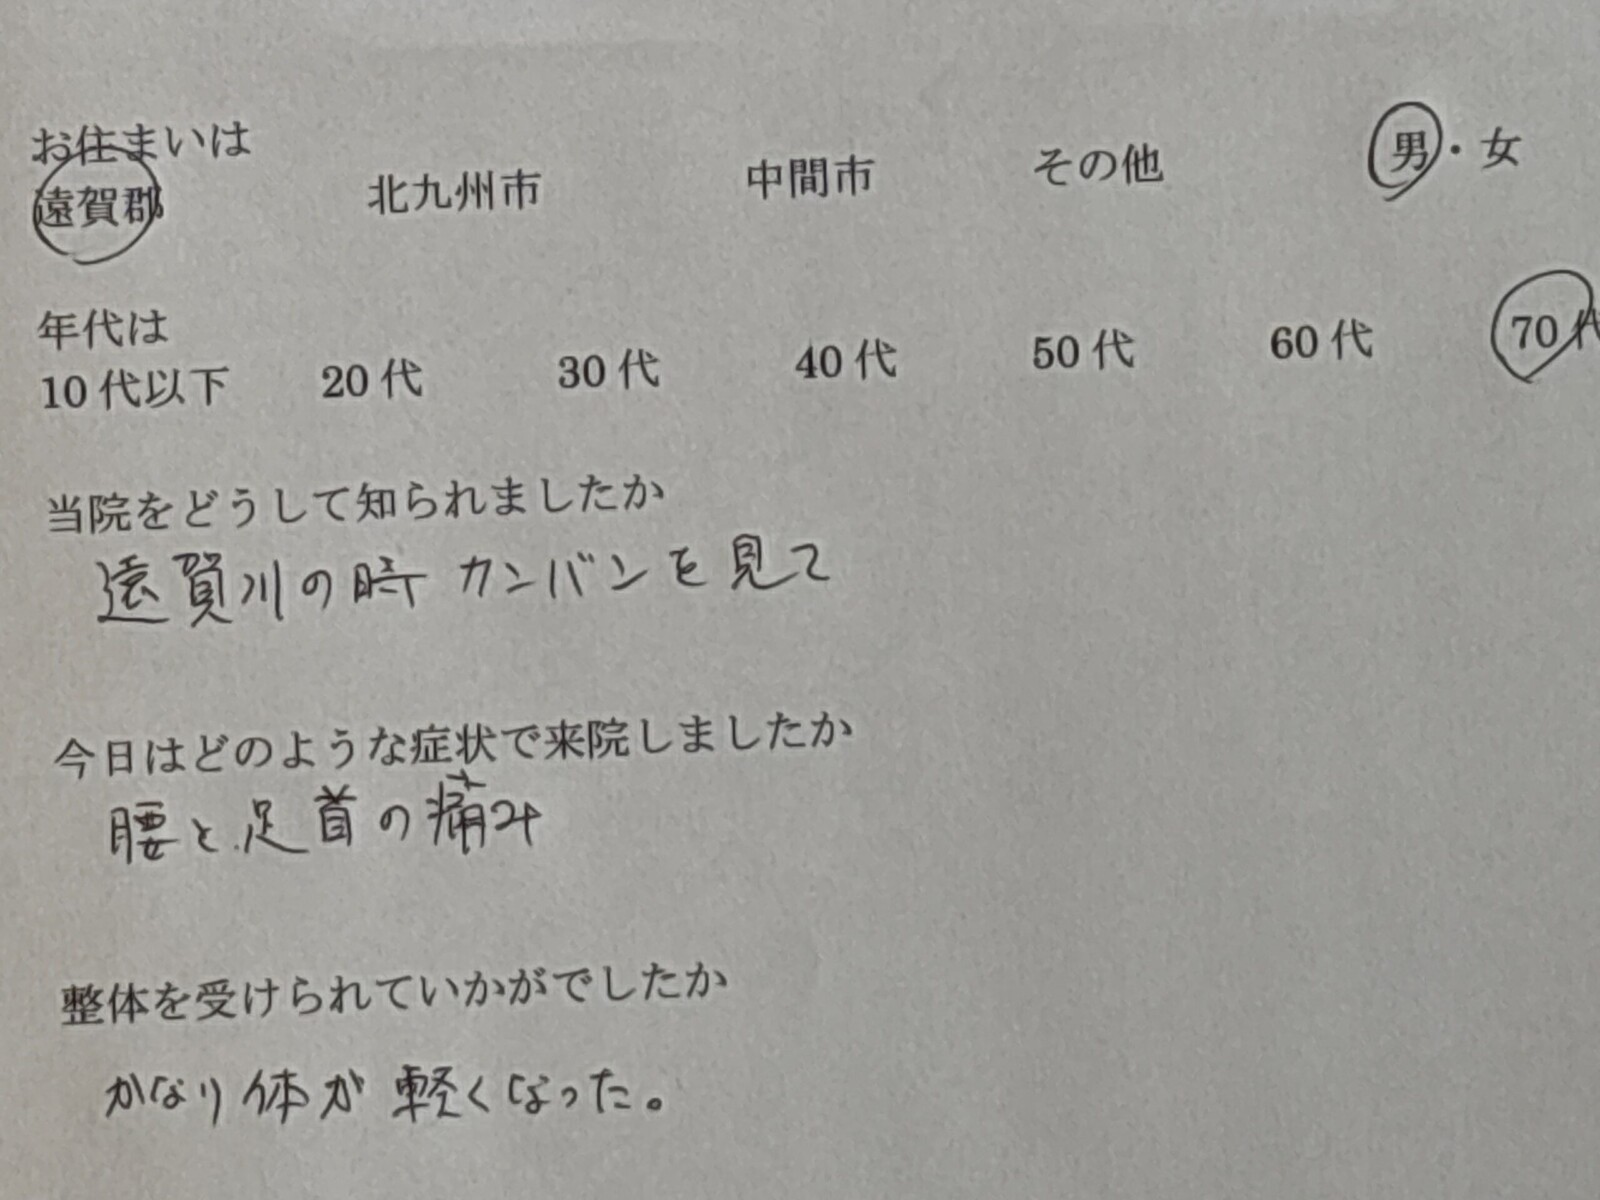 お住まいは
遠賀郡 北九州市 中間市 その他 男・女
年代は
10代以下 20代 30代 40代 50代 60代 70代
当院をどうして知られましたか
遠賀川の時 カンバンを見て
今日はどのような症状で来院しましたか
腰と足首の痛み
整体を受けられていかがでしたか
かなり体が軽くなった。